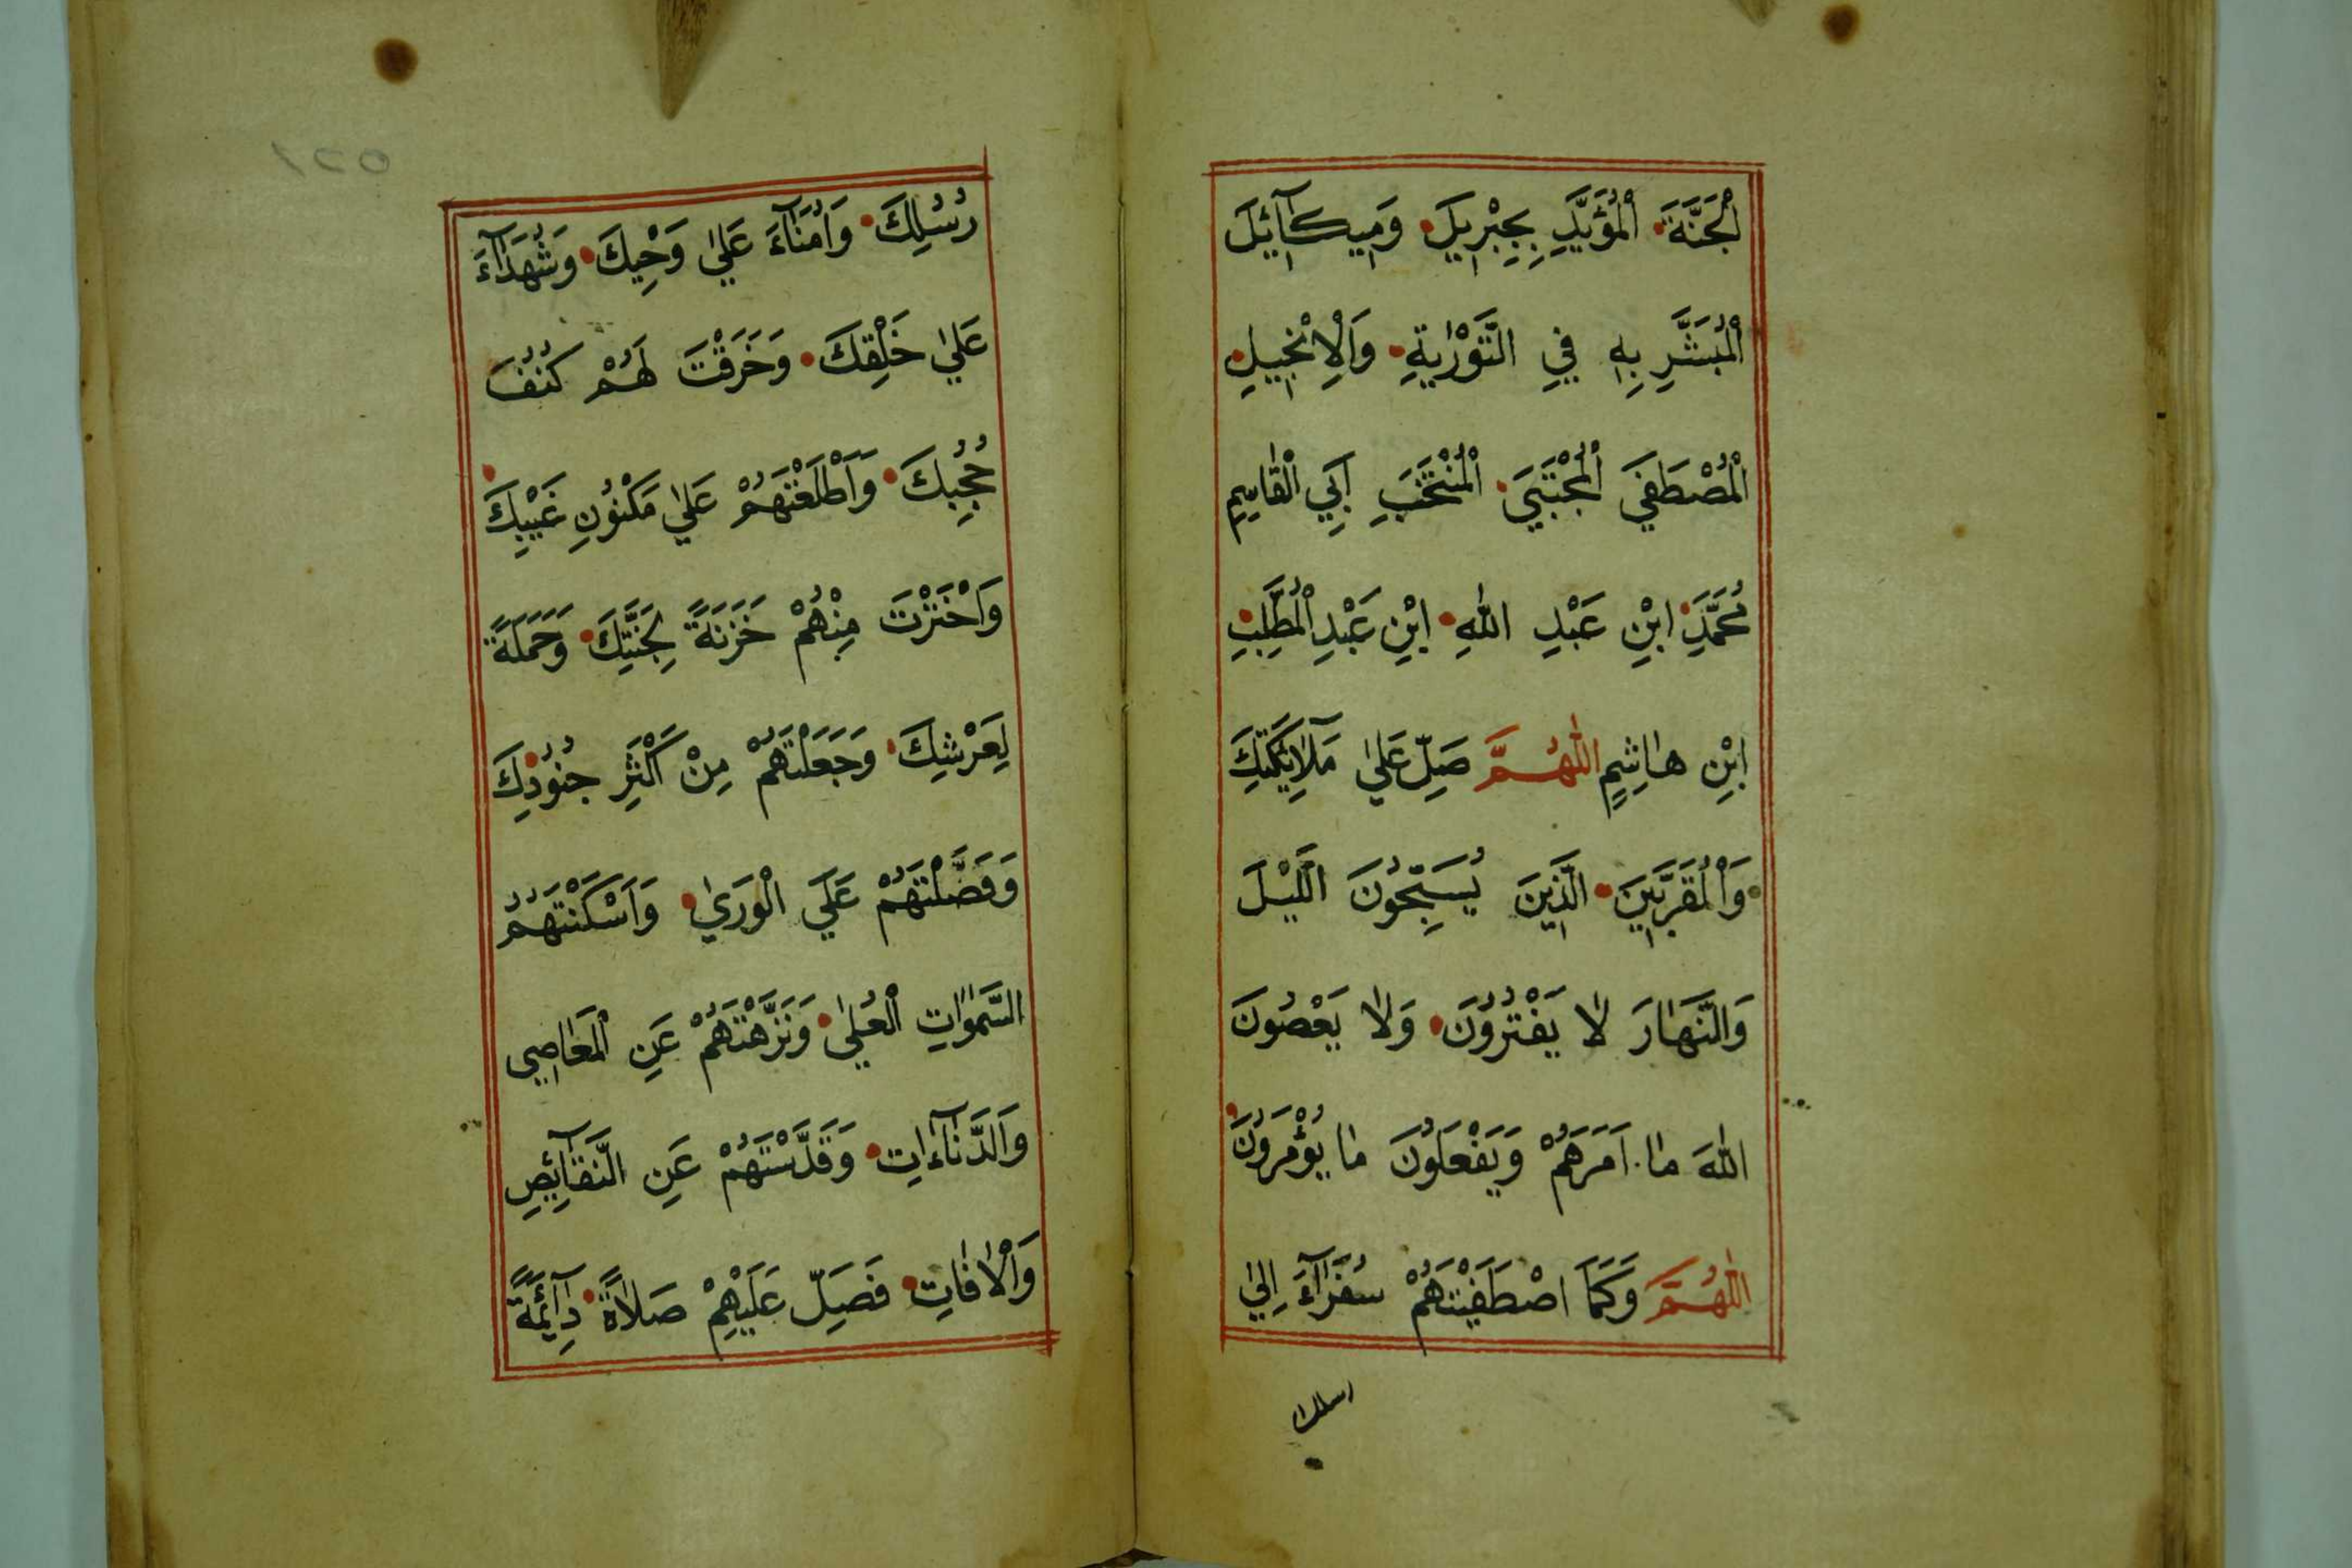 الْجَنَّةَ الْمُؤَيَّدِ بِجِبْرِيلَ وَمِيكَآئِلَ
الْمُبَشَّرِ بِهِ فِي التَّوْرٰيةِ وَالْاِنْجِيلِ
الْمُصْطَفَي الْمُجْتَبَي الْمُنْتَخَبِ اَبِي الْقَاسِمِ
مُحَمَّدِ ابْنِ عَبْدِ اللهِ ابْنِ عَبْدِ الْمُطَّلِبِ
ابْنِ هَاشِمٍ اللّٰهُمَّ صَلِّ عَلٰي مَلَآئِكَتِكَ
وَالْمُقَرَّبِينَ الَّذِينَ يُسَبِّحُونَ الَّيْلَ
وَالنَّهَارَ لَا يَفْتُرُونَ وَلَا يَعْصُونَ
اللهَ مَا اَمَرَهُمْ وَيَفْعَلُونَ مَا يُؤْمَرُونَ
اللّٰهُمَّ وَكَمَا اصْطَفَيْتَهُمْ سُفَرَآءَ اِلٰي
رسلك
رُسُلِكَ وَاُمَنَآءَ عَلٰي وَحْيِكَ وَشُهَدَآءَ
عَلٰي خَلْقِكَ وَخَرَقْتَ لَهُمْ كُنُفَ
حُجُبِكَ وَاَطْلَعْتَهُمْ عَلٰي مَكْنُونِ غَيْبِكَ
وَاخْتَرْتَ مِنْهُمْ خَزَنَةً لِجَنَّتِكَ وَحَمَلَةً
لِعَرْشِكَ وَجَعَلْتَهُمْ مِنْ اَكْثَرِ جُنُودِكَ
وَفَضَّلْتَهُمْ عَلَي الْوَرٰي وَاَسْكَنْتَهُمُ
السَّمٰوَاتِ الْعُلٰي وَنَزَّهْتَهُمْ عَنِ الْمَعَاصِي
وَالدَّنَآءَاتِ وَقَدَّسْتَهُمْ عَنِ النَّقَآئِصِ
وَالْاٰفَاتِ فَصَلِّ عَلَيْهِمْ صَلَاةً دَآئِمَةً